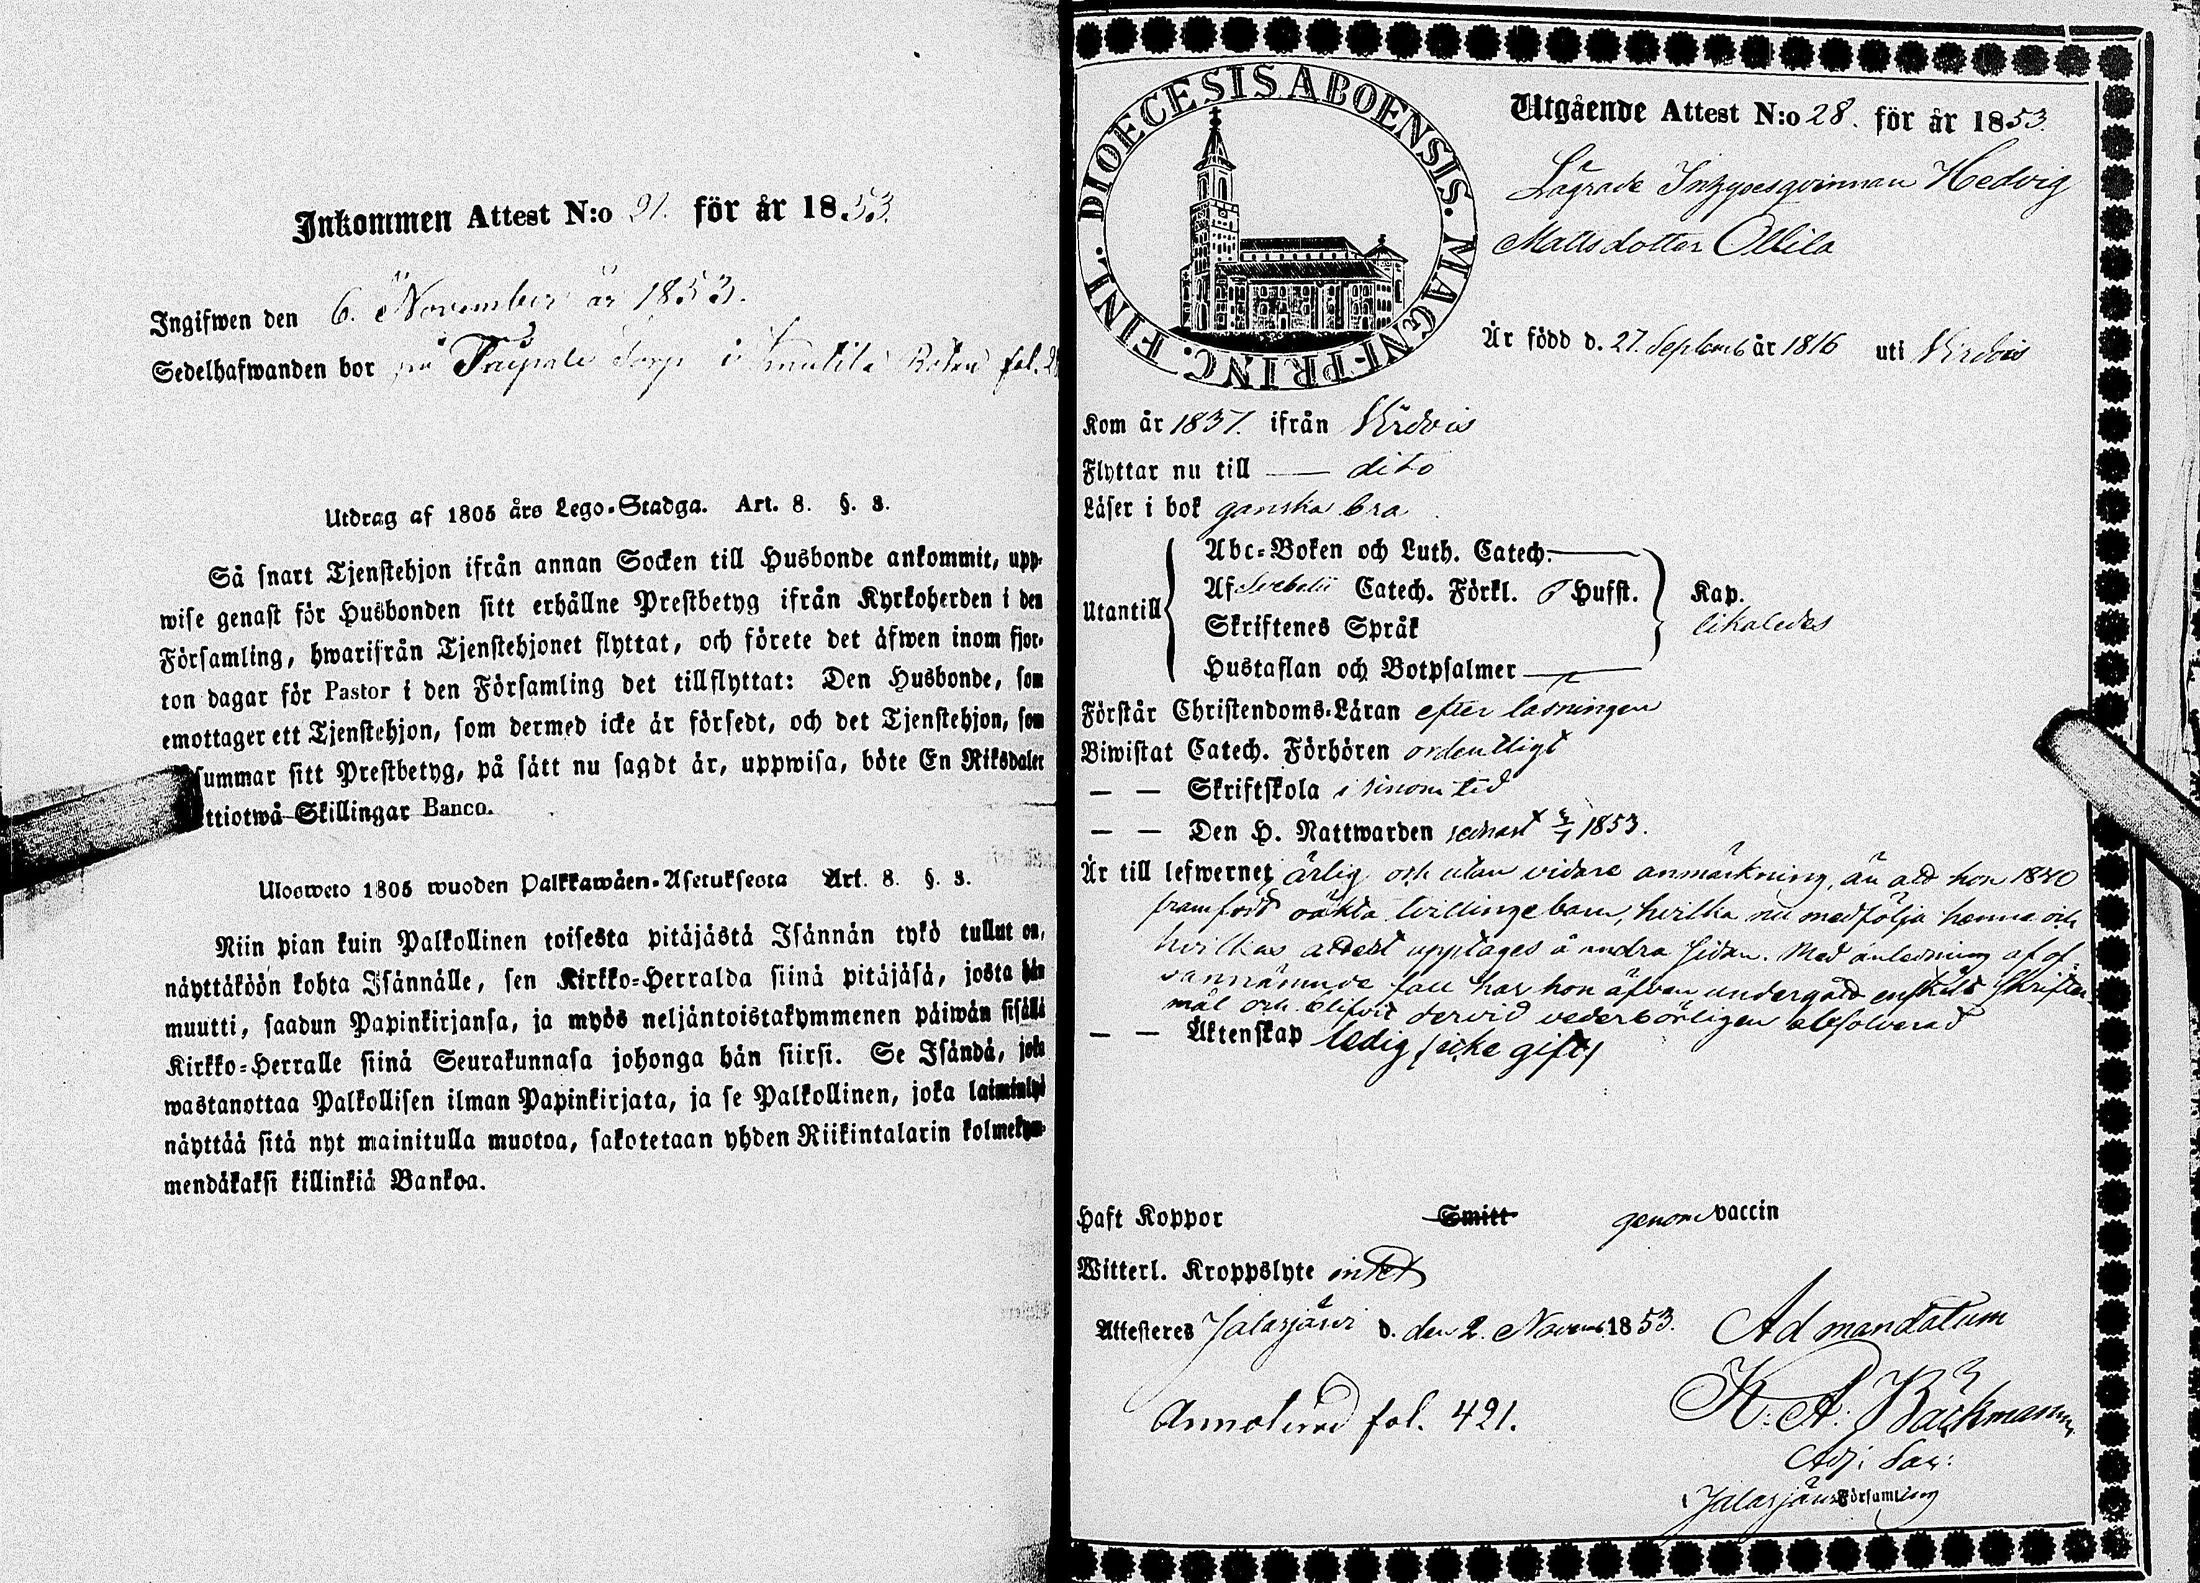 Inkommen Attest N:o 91. för år 1853.
Ingifwen den 6. November år 1853.
Sedelhafwanden bor på Taipale Torp i Rotan fol.
Utdrag af 1805 års Lego-Stadga. Art. 8. §. 3.
Så snart Tjenstehjon ifrån annan Socken till Husbonde ankommit, upp-
wise genast för Husbonden sitt erhållne Prestbetyg ifrån Kyrkoherden i den
Församling, hwarifrån Tjenstehjonet flyttat, och förete det äfwen inom fjor-
ton dagar för Pastor i den Församling det tillflyttat: Den Husbonde, som
emottager ett Tjenstehjon, som dermed icke är försedt, och det Tjenstehjon, som
summar sitt Prestbetyg, på sätt nu sagdt är, uppwisa, böte En Riksdaler
ttiotwå Skillingar Banco.
Ulosweto 1805 wuoden Palkkawäen-Asetuksesta Art. 8. §. 3.
Niin pian kuin Palkollinen toisesta pitäjästä Isännän tykö tullut on,
näyttäköön kohta Isännälle, sen Kirkko-Herralda siinä pitäjäsä, josta hän
muutti, saadun Papinkirjansa, ja myös neljäntoistakymmenen päiwän sisällä
Kirkko-Herralle siinä Seurakunnasa johonga hän siirsi. Se Isändä, joka
wastanottaa Palkollisen ilman Papinkirjata, ja se Palkollinen, joka laiminlyö
näyttää sitä nyt mainitulla muotoa, sakotetaan yhden Riikintalarin kolmekym-
mendäkaksi killinkiä Bankoa.
DIOECESIS ABOENSIS. MAGNI PRINC. FINL.
Utgående Attest N:o 28. för år 1853.
Lägrade Inhysesqvinnan Hedvig
Mattsdotter Ollila
Är född d. 27. Septemb år 1816 uti Virdois
Kom år 1837. ifrån Virdois
Flyttar nu till — dito
Läser i bok ganska bra
Utantill
Abc-Boken och Luth. Catech.
Af Svebelii Catech. Förkl. o Hufst.
Skriftenes Språk
Hustaflan och Botpsalmer
Kap.
likaledes
Förstår Christendoms-Läran efter läsningen
Biwistat Catech. Förhören ordentligt
— — Skriftskola i sinom tid
— — Den H. Nattwarden senast 1853.
Är till lefwernet ärlig och utan vidare anmärkning, än att hon 1840
framfödt oäkta tvillingebarn, hvilka nu medfölja henne och
hvilkas attest upptages å andra sidan. Med anledning af of-
vannämnde fall har hon äfven undergått enskildt Skrifter-
mål och blifvit dervid vederbörligen absolverad
— — Äktenskap ledig /icke gift/
Haft Koppor Smitt genom vaccin
Witterl. Kroppslyte intet
Attesteres Jalasjärvi d. den 2. Novemb 1853. Ad mandatum
K. A. Bäckmann
Adj: Sac:
Annoterad fol. 421.
i Jalasjärvi Församling